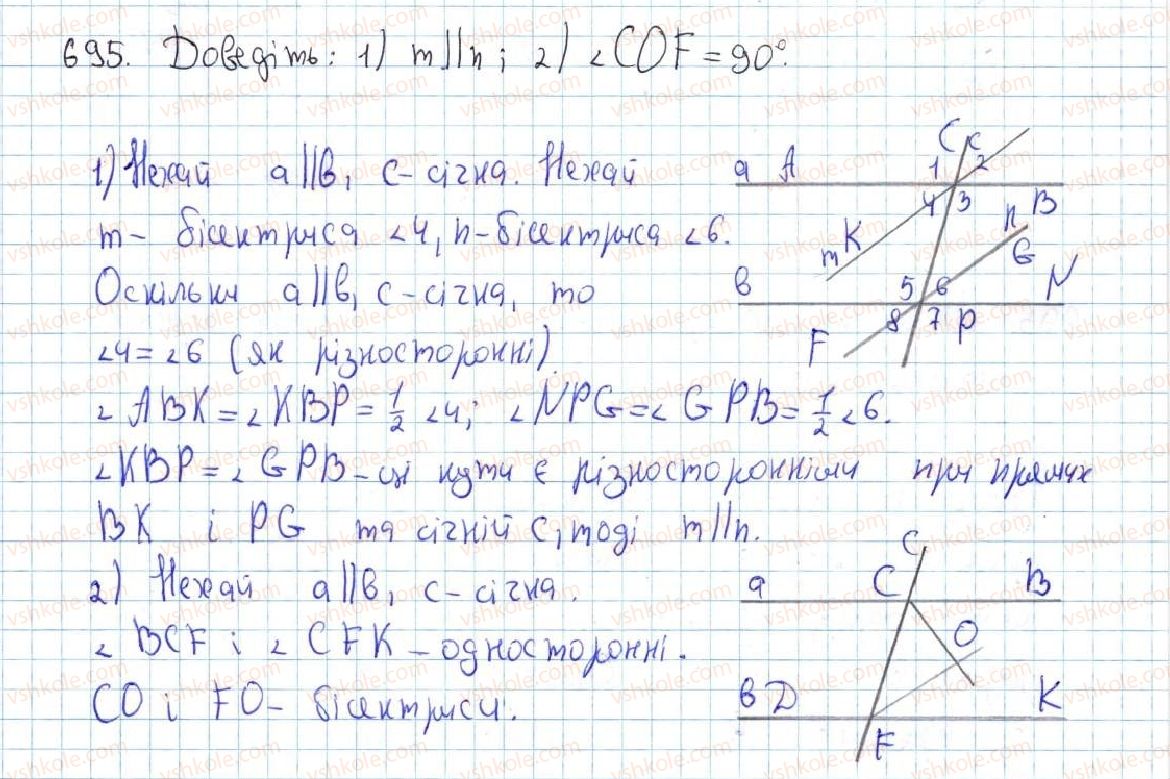 695. Доведіть: 1) m||n; 2) ∠COF = 90°.
1) Нехай a||b, c – січна. Нехай
m – бісектриса ∠4, n – бісектриса ∠6.
Оскільки a||b, c – січна, то
∠4 = ∠6 (як різносторонні).
∠ABK = ∠KBP = 1/2 ∠4; ∠NPG = ∠GPB = 1/2 ∠6.
∠KBP = ∠GPB – ці кути є різносторонніми при прямих
BK і PG та січній c, тоді m||n.
2) Нехай a||b, c – січна.
∠BCF і ∠CFK – односторонні.
CO і FO – бісектриси.
C K
a A 1 2
4 3 B
m K n G
b 5 6 N
F 8 7 P
c
a C B
O
b D K
F
vshkole.com